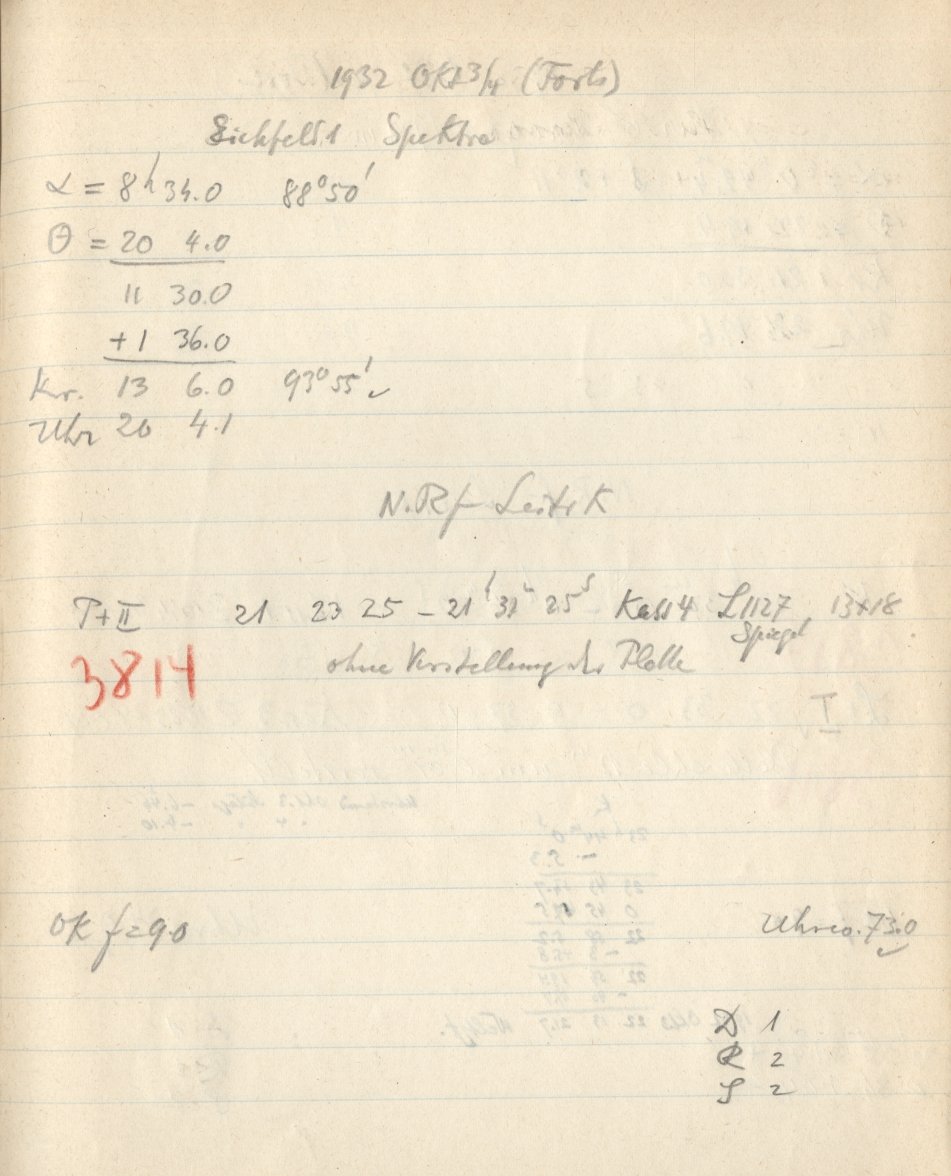 1932 Okt 3/4 (Forts)
Eichfeld 1 Spektra
α = 8h 34.0 88° 50'
θ = 20 4.0
11 30.0
+1 36.0
Kr. 13 6.0 93° 55' ✓
Uhr 20 4.1
N.Rf - Leitr K
P+II 21 23 25 - 21h 31m 25s Kass 4 L1127 13x18
Spiegel
3814 ohne Verstellung der Platte
OK f = 9.0 Uhrco. 73.0
✓
D 1
R 2
S 2